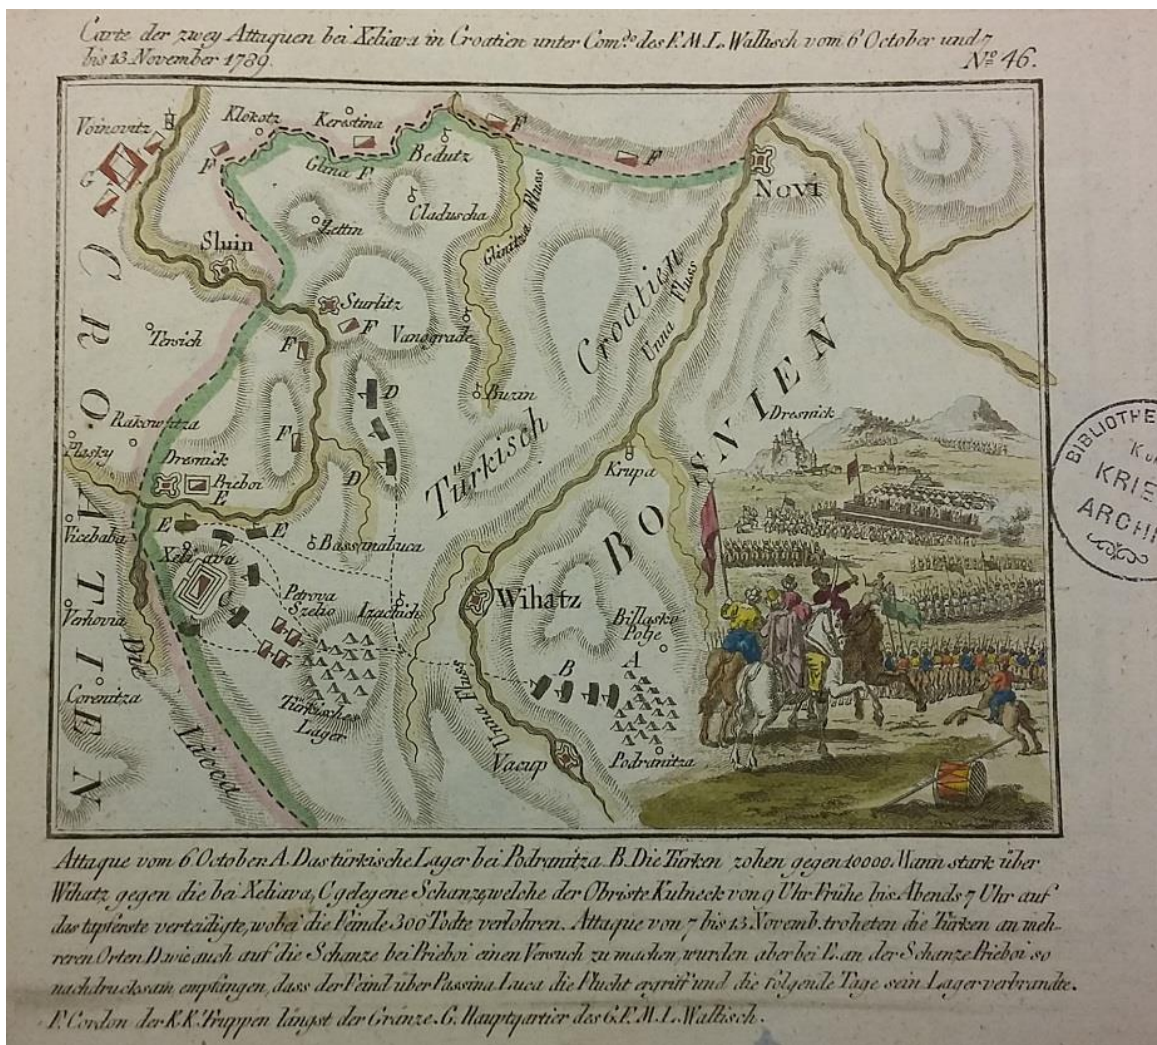 Carte der zwey Attaquen bei Xeliava in Croatien unter Com.do des F.M.L. Wallisch vom 6 October und 7
bis 13 November 1789.
No 46.
Voinovitz
Klokotz
Kerestina
F
F
G
F
Glina F
Bedutz
F
Novi
Claduscha
Zettin
Glinitza Fluss
Sluin
Sturlitz
F
Vanograde
Croatien
Unna Fluss
Tersich
F
D
Buzin
BOSNIEN
Rakowitza
F
Türkisch
Dresnick
Plasky
Dresnick
Krupa
Prieboi
E
D
Vicebaba
E
E
Bassinaluca
Xeliava
Petrova
Szelio
Izachich
Wihatz
Verhovia
C
Billasko
Polje
A
B
Corenitza
Türkisches
Lager
Unna Fluss
Vacup
Podranitza
CROATIEN
Die
BIBLIOTHE
KRIE
ARCHI
Attaque vom 6 October A. Das türkische Lager bei Podranitza. B. Die Türken zohen gegen 10000. Mann stark über
Wihatz gegen die bei Xeliava, C gelegene Schanze, welche der Obriste Kulneck von 9 Uhr Frühe bis Abends 7 Uhr auf
das tapferste verteidigte, wobei die Feinde 300 Todte verlohren. Attaque von 7 bis 13 Novemb. troheten die Türken an meh-
reren Orten D wie auch auf die Schanze bei Prieboi einen Versuch zu machen, wurden aber bei E. an der Schanze Prieboi so
nachdrucksam empfangen, dass der Feind über Passina Luca die Flucht ergriff und die folgende Tage sein Lager verbrandte.
F. Cordon der K.K. Truppen längst der Gränze. G. Hauptqartier des G.F.M.L. Wallisch.